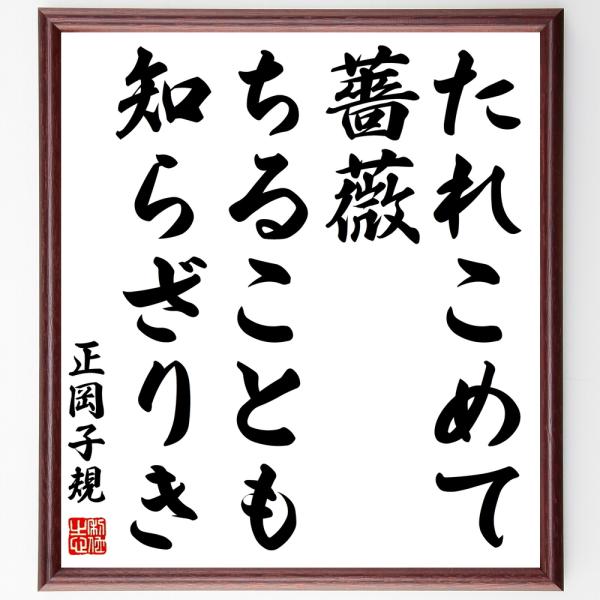 たれこめて
薔薇
ちることも
知らざりき
正岡子規